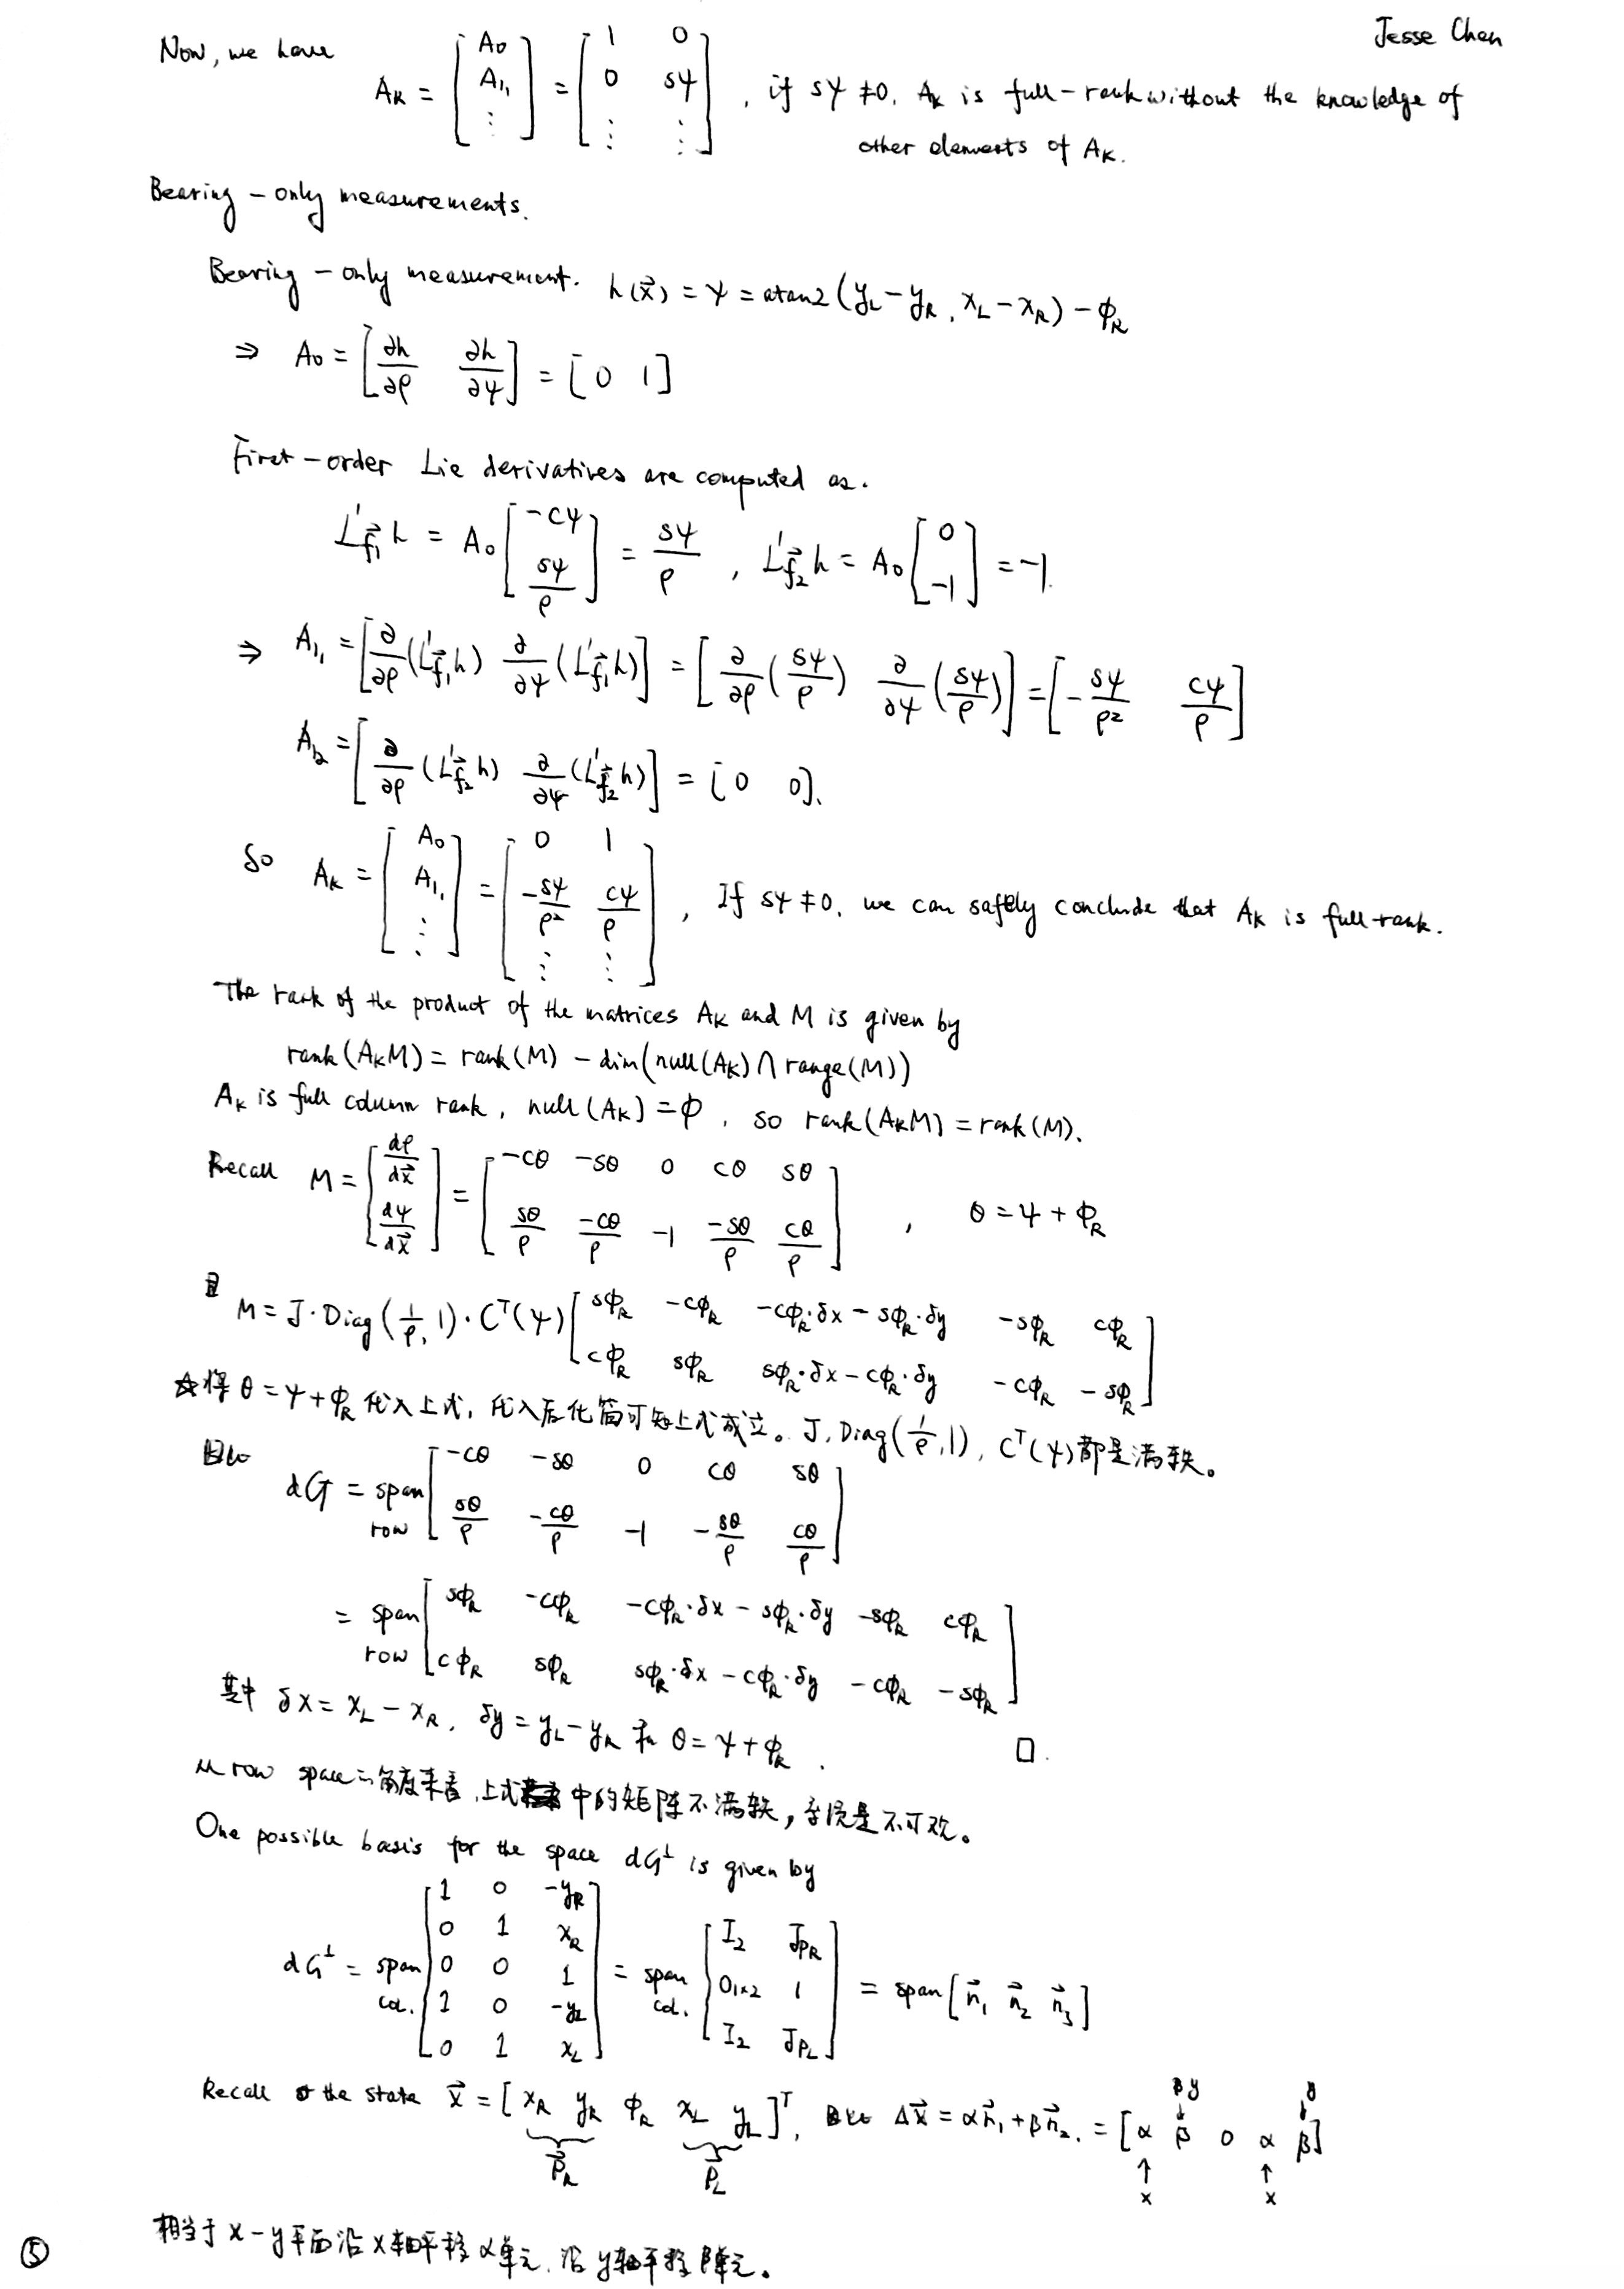 Jesse Chen
Now, we have A_K = [A_0; A_{1_1}; ⋮] = [1 0; 0 sψ; ⋮ ⋮], if sψ ≠ 0, A_K is full-rank without the knowledge of
other elements of A_K.
Bearing-only measurements.
Bearing-only measurement. h(x⃗) = ψ = atan2(y_L - y_R, x_L - x_R) - φ_R
⇒ A_0 = [∂h/∂ρ ∂h/∂ψ] = [0 1]
First-order Lie derivatives are computed as.
L¹_{f⃗_1} h = A_0 [-cψ; sψ/ρ] = sψ/ρ, L¹_{f⃗_2} h = A_0 [0; -1] = -1.
⇒ A_{1_1} = [∂/∂ρ (L¹_{f⃗_1} h) ∂/∂ψ (L¹_{f⃗_1} h)] = [∂/∂ρ (sψ/ρ) ∂/∂ψ (sψ/ρ)] = [-sψ/ρ² cψ/ρ]
A_{1_2} = [∂/∂ρ (L¹_{f⃗_2} h) ∂/∂ψ (L¹_{f⃗_2} h)] = [0 0].
So A_K = [A_0; A_{1_1}; ⋮] = [0 1; -sψ/ρ² cψ/ρ; ⋮ ⋮], If sψ ≠ 0, we can safely conclude that A_K is full-rank.
The rank of the product of the matrices A_K and M is given by
rank(A_K M) = rank(M) - dim(null(A_K) ∩ range(M))
A_K is full column rank, null(A_K) = ϕ, so rank(A_K M) = rank(M).
Recall M = [dρ/dx⃗; dψ/dx⃗] = [-cθ -sθ 0 cθ sθ; sθ/ρ -cθ/ρ -1 -sθ/ρ cθ/ρ], θ = ψ + φ_R
M = J · Diag(1/ρ, 1) · C^T(ψ) [sφ_R -cφ_R -cφ_R·δx - sφ_R·δy -sφ_R cφ_R; cφ_R sφ_R sφ_R·δx - cφ_R·δy -cφ_R -sφ_R]
☆将 θ = ψ + φ_R 代入上式, 代入后化简可知上式成立。J, Diag(1/ρ, 1), C^T(ψ) 都是满秩。
dG = span row [-cθ -sθ 0 cθ sθ; sθ/ρ -cθ/ρ -1 -sθ/ρ cθ/ρ]
= span row [sφ_R -cφ_R -cφ_R·δx - sφ_R·δy -sφ_R cφ_R; cφ_R sφ_R sφ_R·δx - cφ_R·δy -cφ_R -sφ_R]
其中 δx = x_L - x_R, δy = y_L - y_R 和 θ = ψ + φ_R. □.
从 row space 的角度来看, 上式中的矩阵不满秩, 系统是不可观。
One possible basis for the space dG^⊥ is given by
dG^⊥ = span col. [1 0 -y_R; 0 1 x_R; 0 0 1; 1 0 -y_L; 0 1 x_L] = span col. [I_2 Jp_R; 0_{1×2} 1; I_2 Jp_L] = span [n⃗_1 n⃗_2 n⃗_3]
Recall the state x⃗ = [x_R y_R φ_R x_L y_L]^T, Δx⃗ = αn⃗_1 + βn⃗_2. = [α β 0 α β]
P⃗_R P⃗_L
y y
x x
相当于 x-y 平面沿 x 轴平移 α 单元, 沿 y 轴平移 β 单元。
⑤